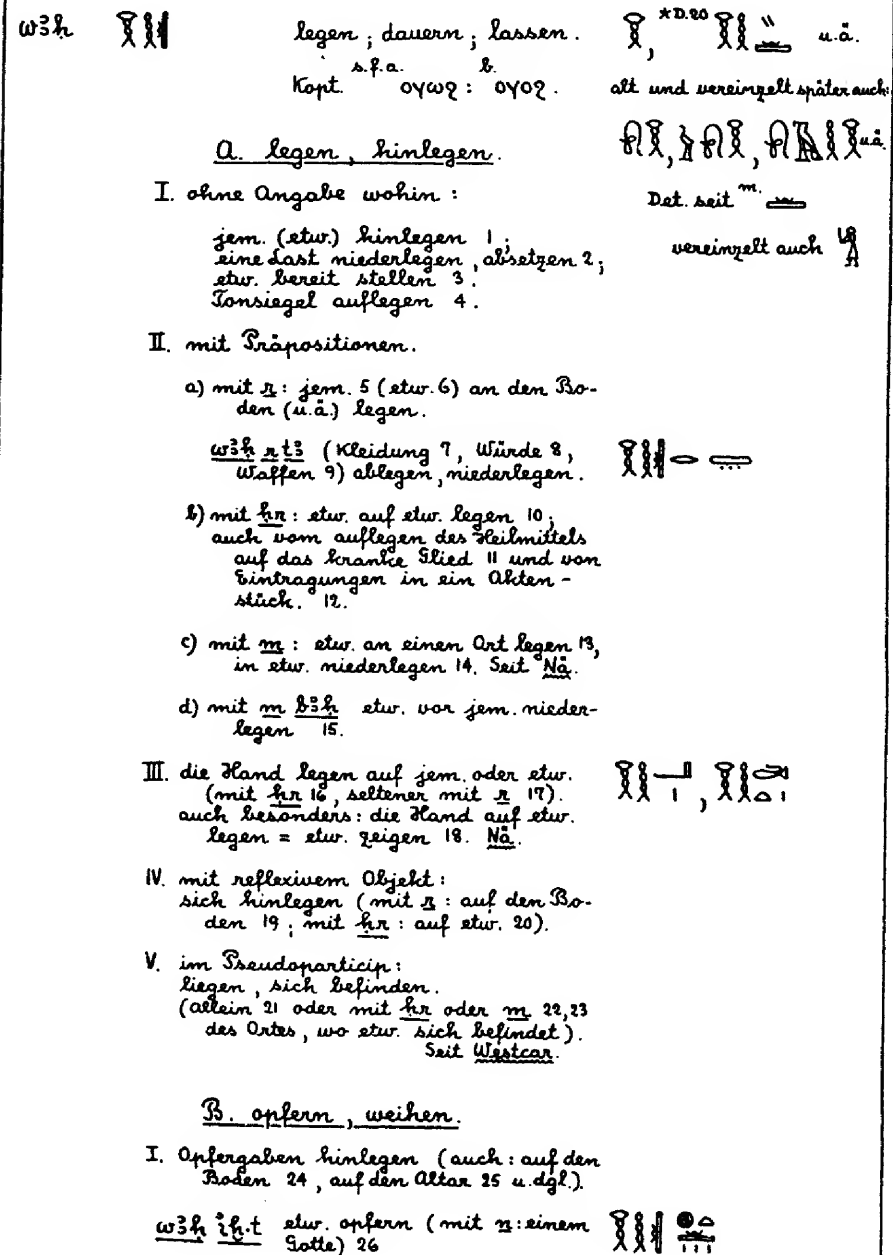 wꜣḥ legen; dauern; lassen. *D.20 u.ä.
Kopt. s.f.a. ⲟⲩⲱϩ : b. ⲟⲩⲟϩ. alt und vereinzelt später auch:
u.ä.
A. legen, hinlegen.
I. ohne Angabe wohin: Det. seit m.
jem. (etw.) hinlegen 1;
eine Last niederlegen, absetzen 2; vereinzelt auch
etw. bereit stellen 3.
Tonsiegel auflegen 4.
II. mit Präpositionen.
a) mit r: jem. 5 (etw. 6) an den Bo-
den (u.ä.) legen.
wꜣḥ r tꜣ (Kleidung 7, Würde 8,
Waffen 9) ablegen, niederlegen.
b) mit ḥr: etw. auf etw. legen 10;
auch vom auflegen des Heilmittels
auf das kranke Glied 11 und von
Eintragungen in ein Akten-
stück. 12.
c) mit m: etw. an einen Ort legen 13,
in etw. niederlegen 14. Seit Nä.
d) mit m bꜣḥ etw. vor jem. nieder-
legen 15.
III. die Hand legen auf jem. oder etw.
(mit ḥr 16, seltener mit r 17).
auch besonders: die Hand auf etw.
legen = etw. zeigen 18. Nä.
IV. mit reflexivem Objekt:
sich hinlegen (mit r: auf den Bo-
den 19; mit ḥr: auf etw. 20).
V. im Pseudoparticip:
liegen, sich befinden.
(allein 21 oder mit ḥr oder m 22,23
des Ortes, wo etw. sich befindet).
Seit Westcar.
B. opfern, weihen.
I. Opfergaben hinlegen (auch: auf den
Boden 24, auf den Altar 25 u.dgl.).
wꜣḥ iḫ.t etw. opfern (mit n: einem
Gotte) 26